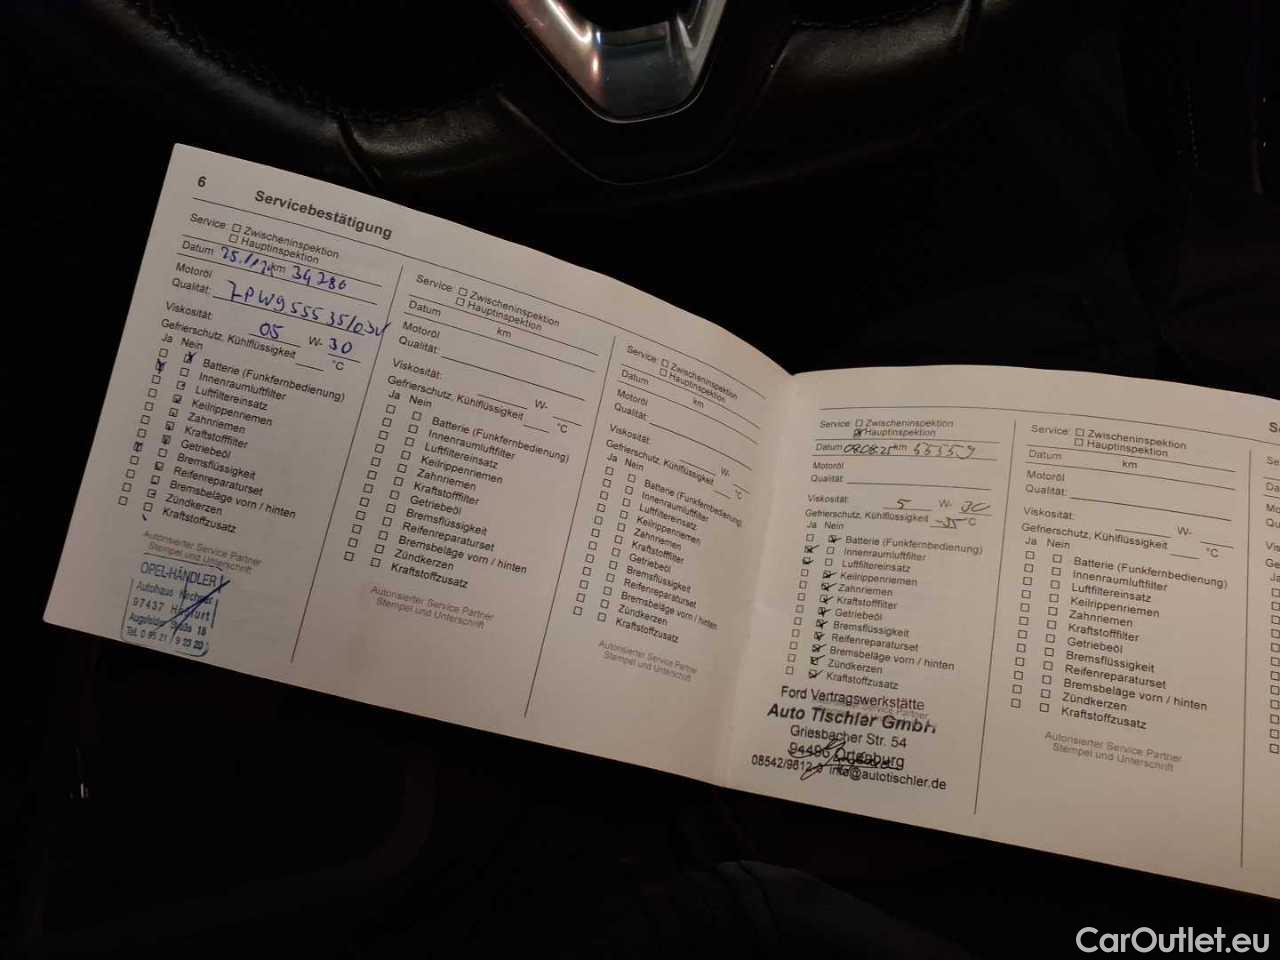 6
Servicebestätigung
Service: Zwischeninspektion
Hauptinspektion
Datum km 34280
Motoröl
Qualität:
Viskosität: 05 W- 30
Gefrierschutz, Kühlflüssigkeit °C
Ja Nein
Batterie (Funkfernbedienung)
Innenraumluftfilter
Luftfiltereinsatz
Keilrippenriemen
Zahnriemen
Kraftstofffilter
Getriebeöl
Bremsflüssigkeit
Reifenreparaturset
Bremsbeläge vorn / hinten
Zündkerzen
Kraftstoffzusatz
Autorisierter Service Partner
Stempel und Unterschrift
OPEL-HÄNDLER
Autohaus
97437 Haßfurt
Tel. 0 95 21 /
Service: Zwischeninspektion
Hauptinspektion
Datum km
Motoröl
Qualität:
Viskosität: W-
Gefrierschutz, Kühlflüssigkeit °C
Ja Nein
Batterie (Funkfernbedienung)
Innenraumluftfilter
Luftfiltereinsatz
Keilrippenriemen
Zahnriemen
Kraftstofffilter
Getriebeöl
Bremsflüssigkeit
Reifenreparaturset
Bremsbeläge vorn / hinten
Zündkerzen
Kraftstoffzusatz
Autorisierter Service Partner
Stempel und Unterschrift
Service: Zwischeninspektion
Hauptinspektion
Datum km
Motoröl
Qualität:
Viskosität: W-
Gefrierschutz, Kühlflüssigkeit °C
Ja Nein
Batterie (Funkfernbedienung)
Innenraumluftfilter
Luftfiltereinsatz
Keilrippenriemen
Zahnriemen
Kraftstofffilter
Getriebeöl
Bremsflüssigkeit
Reifenreparaturset
Bremsbeläge vorn / hinten
Zündkerzen
Kraftstoffzusatz
Autorisierter Service Partner
Stempel und Unterschrift
Service: Zwischeninspektion
Hauptinspektion
Datum 08.08.25 km
Motoröl
Qualität:
Viskosität: 5 W- 30
Gefrierschutz, Kühlflüssigkeit -35 °C
Ja Nein
Batterie (Funkfernbedienung)
Innenraumluftfilter
Luftfiltereinsatz
Keilrippenriemen
Zahnriemen
Kraftstofffilter
Getriebeöl
Bremsflüssigkeit
Reifenreparaturset
Bremsbeläge vorn / hinten
Zündkerzen
Kraftstoffzusatz
Ford Vertragswerkstätte
Auto Tischler GmbH
Griesbacher Str. 54
94496 Ortenburg
08542/9612-0 info@autotischler.de
Service: Zwischeninspektion
Hauptinspektion
Datum km
Motoröl
Qualität:
Viskosität: W-
Gefrierschutz, Kühlflüssigkeit °C
Ja Nein
Batterie (Funkfernbedienung)
Innenraumluftfilter
Luftfiltereinsatz
Keilrippenriemen
Zahnriemen
Kraftstofffilter
Getriebeöl
Bremsflüssigkeit
Reifenreparaturset
Bremsbeläge vorn / hinten
Zündkerzen
Kraftstoffzusatz
Autorisierter Service Partner
Stempel und Unterschrift
CarOutlet.eu